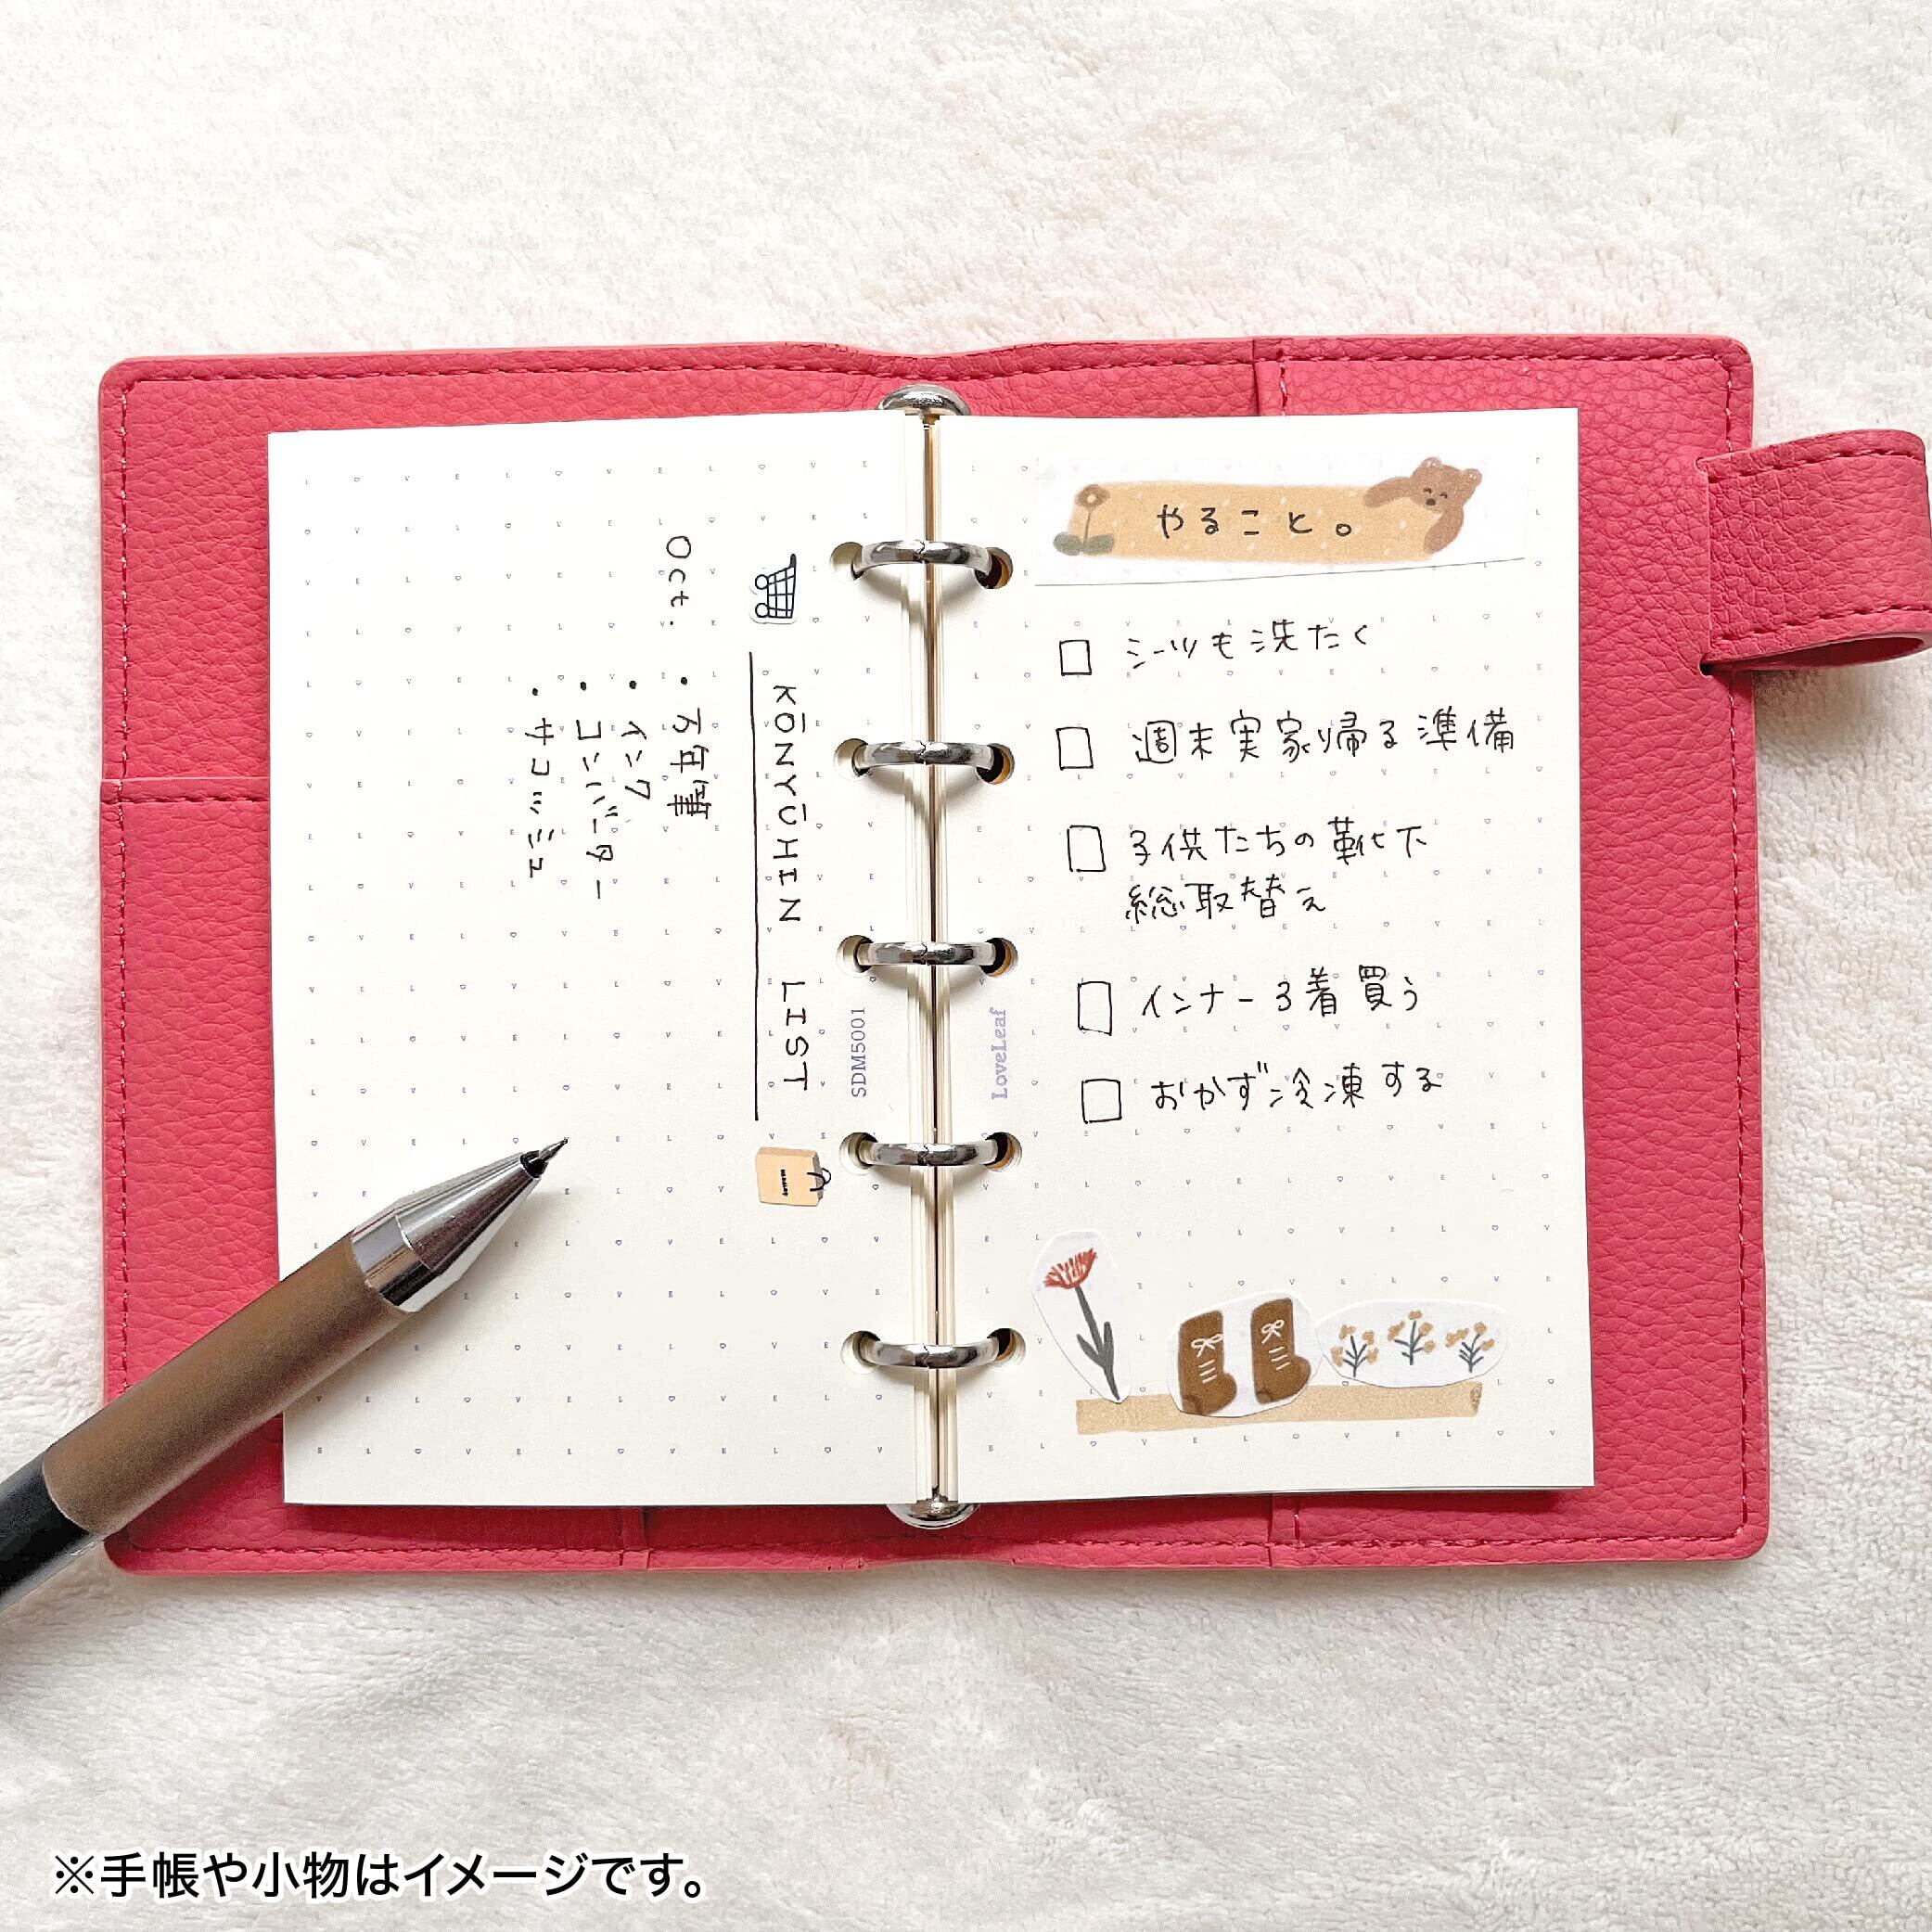 KŌNYŪHIN LIST
Oct.
・万年筆
・インク
・コンバーター
・サコッシュ
SDM5001
LoveLeaf
やること。
□ シーツも洗たく
□ 週末実家帰る準備
□ 子供たちの靴下
総取替え
□ インナー3着買う
□ おかず冷凍する
※手帳や小物はイメージです。